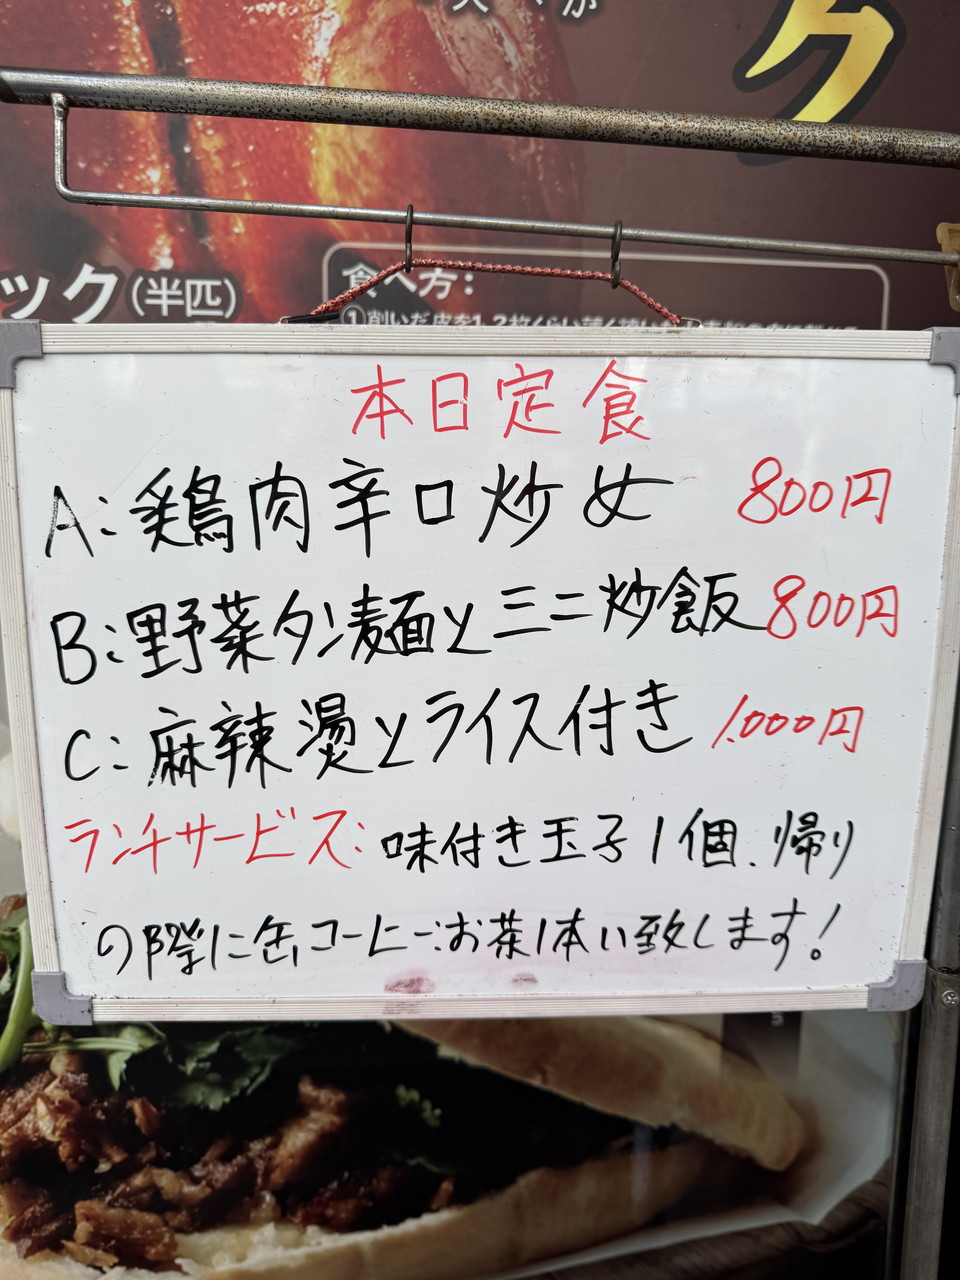 ク
ック(半匹)
食べ方:
本日定食
A:鶏肉辛口炒め 800円
B:野菜タン麺とミニ炒飯 800円
C:麻辣燙とライス付き 1.000円
ランチサービス:味付き玉子1個、帰り
の際に缶コーヒー:お茶1本い致します!